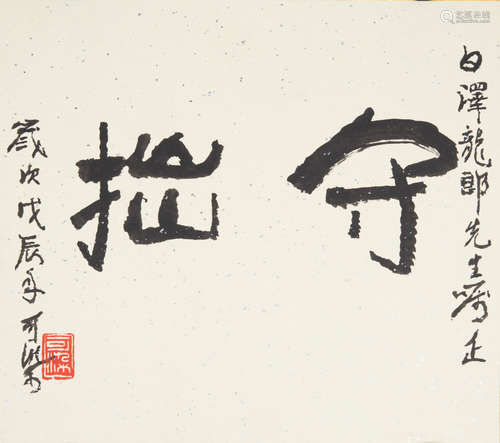 白澤龍郎先生嘱正
守拙
歲次戊辰年 可染
可染